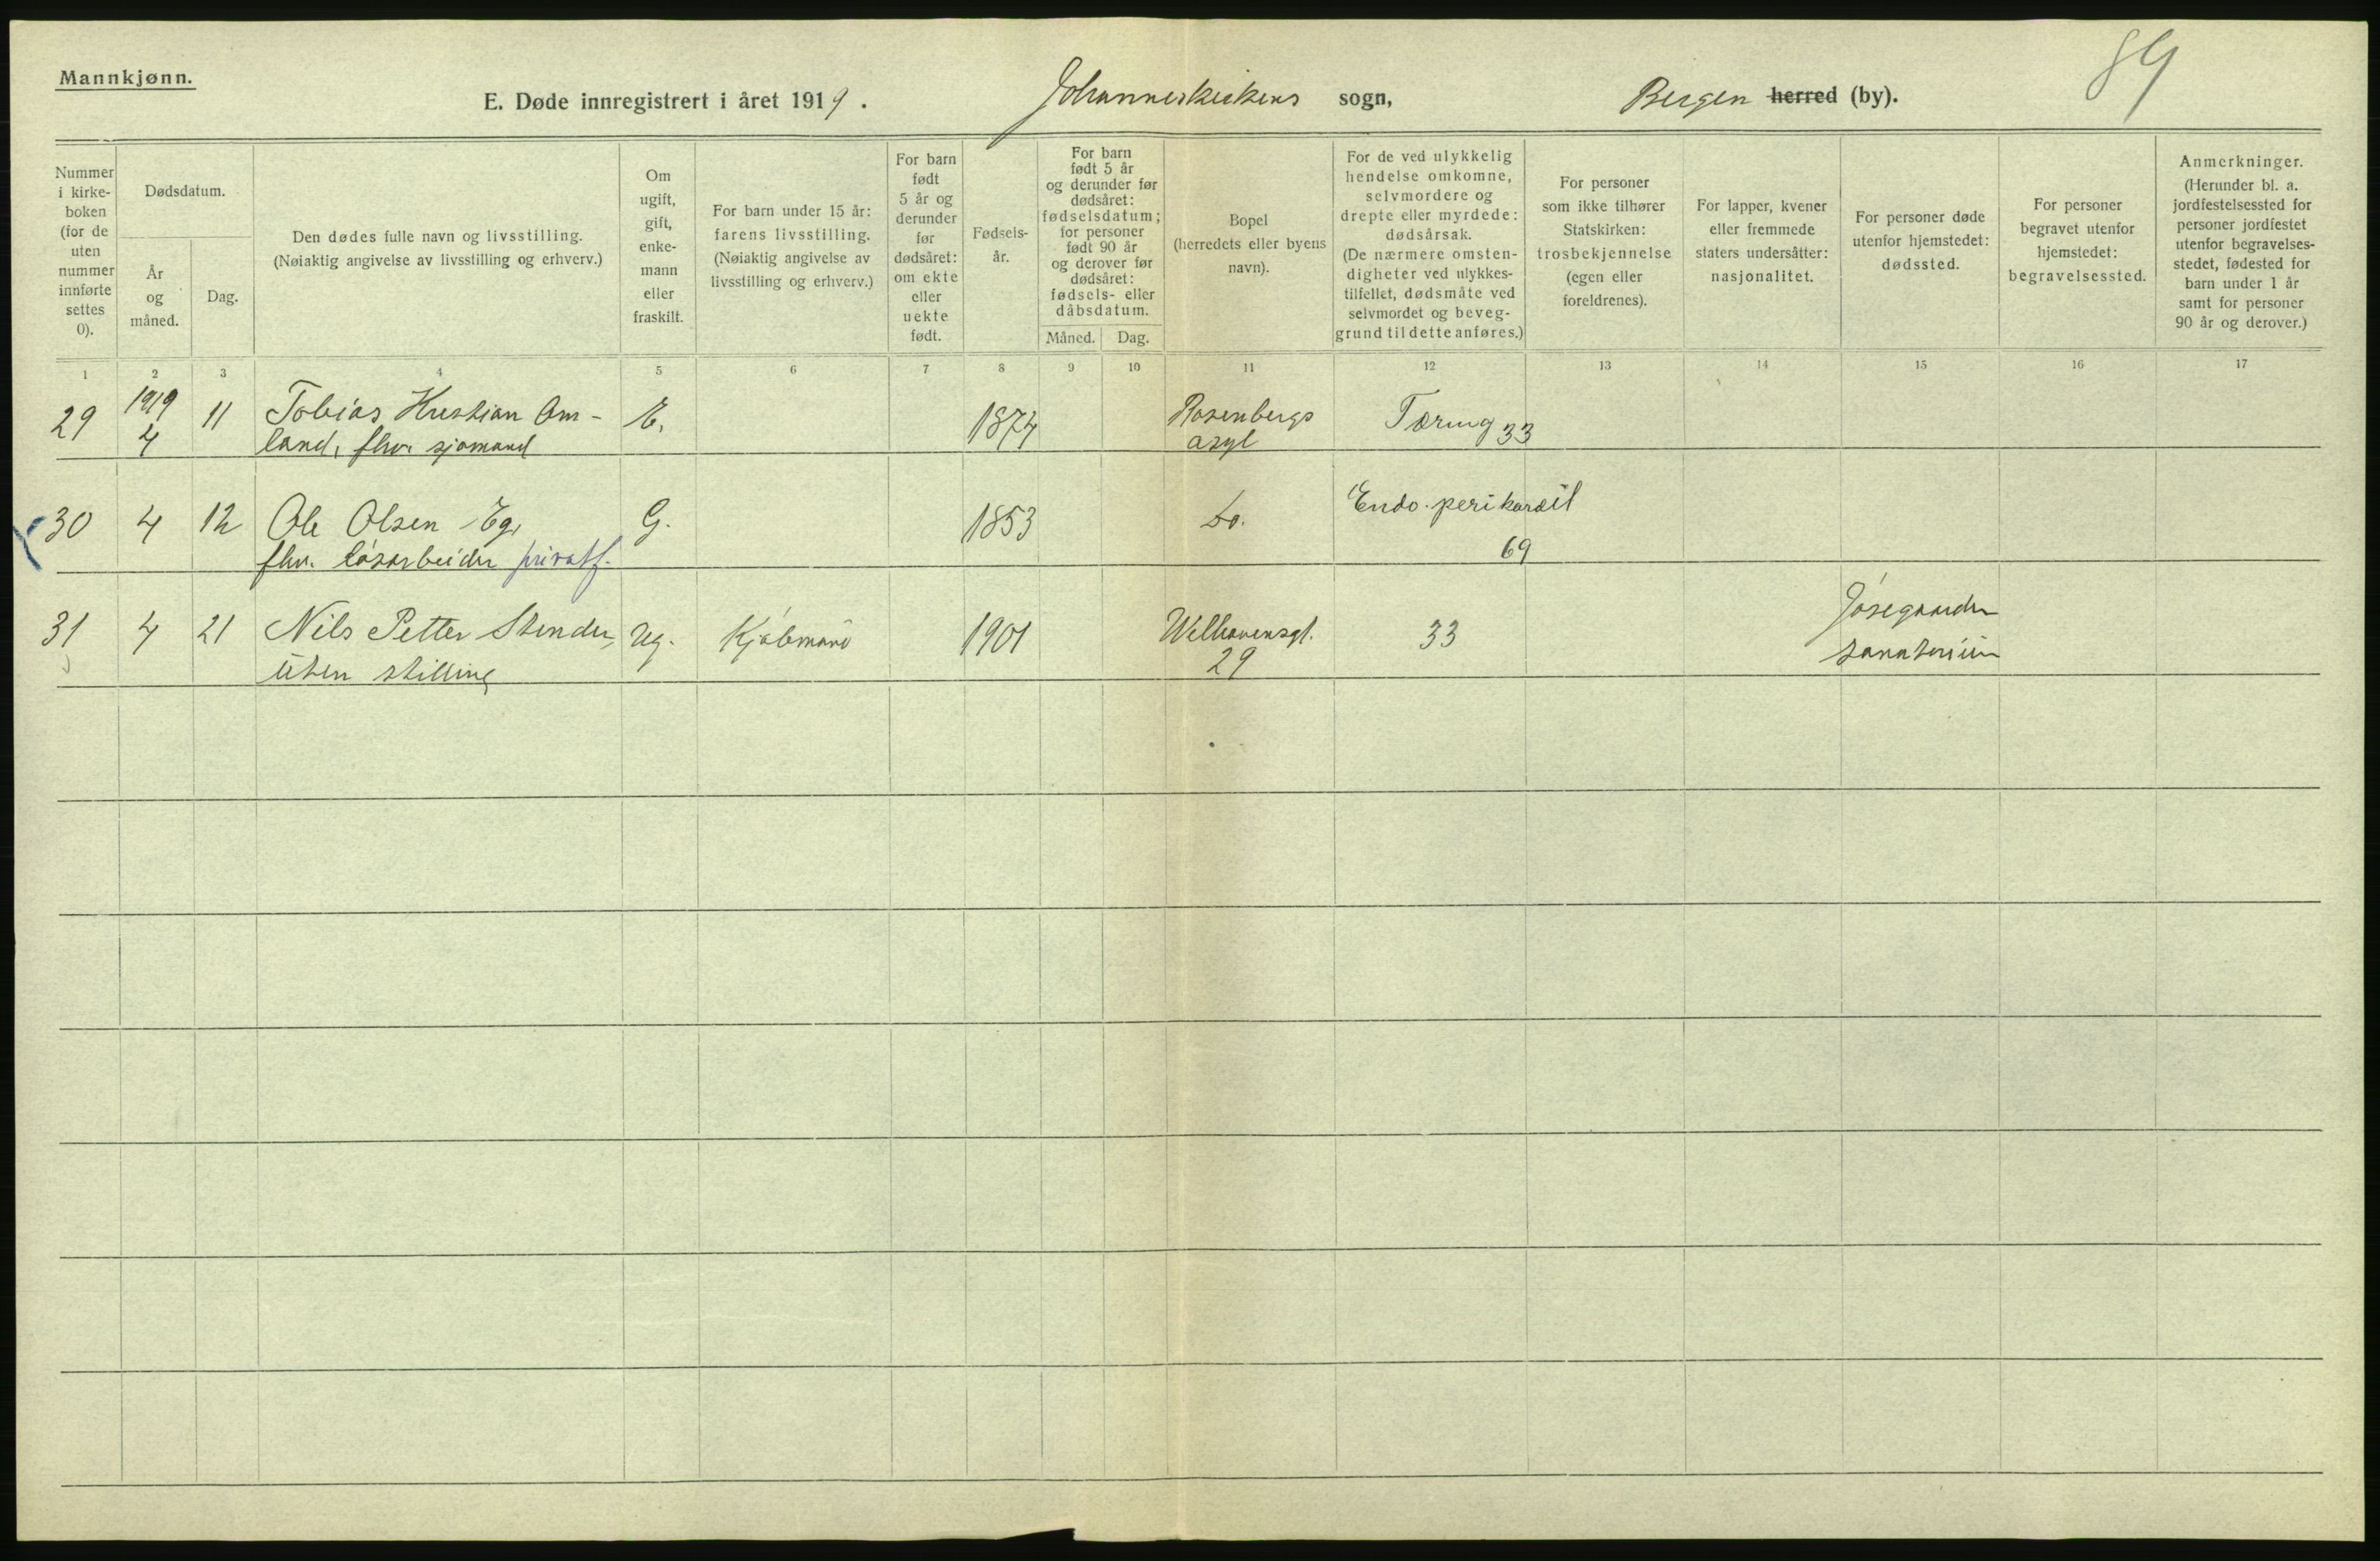 89
Mannkjønn.
E. Døde innregistrert i året 1919. Johanneskirkens sogn, Bergen herred (by).
Nummer
i kirke-
boken
(for de
uten
nummer
innførte
settes
0).
Dødsdatum.
År
og
måned.
Dag.
Den dødes fulle navn og livsstilling.
(Nøiaktig angivelse av livsstilling og erhverv.)
Om
ugift,
gift,
enke-
mann
eller
fraskilt.
For barn under 15 år:
farens livsstilling.
(Nøiaktig angivelse av
livsstilling og erhverv.)
For barn
født
5 år og
derunder
før
dødsåret:
om ekte
eller
uekte
født.
Fødsels-
år.
For barn
født 5 år
og derunder før
dødsåret:
fødselsdatum;
for personer
født 90 år
og derover før
dødsåret:
fødsels- eller
dåbsdatum.
Måned. Dag.
Bopel
(herredets eller byens
navn).
For de ved ulykkelig
hendelse omkomne,
selvmordere og
drepte eller myrdede:
dødsårsak.
(De nærmere omsten-
digheter ved ulykkes-
tilfellet, dødsmåte ved
selvmordet og beveg-
grund til dette anføres.)
For personer
som ikke tilhører
Statskirken:
trosbekjennelse
(egen eller
foreldrenes).
For lapper, kvener
eller fremmede
staters undersåtter:
nasjonalitet.
For personer døde
utenfor hjemstedet:
dødssted.
For personer
begravet utenfor
hjemstedet:
begravelsessted.
Anmerkninger.
(Herunder bl. a.
jordfestelsessted for
personer jordfestet
utenfor begravelses-
stedet, fødested for
barn under 1 år
samt for personer
90 år og derover.)
1 2 3 4 5 6 7 8 9 10 11 12 13 14 15 16 17
29 1919 4 11 Tobias Kristian Om-
land, fhv. sjømand
E. 1874 Rosenbergs
asyl
Tæring 33
30 4 12 Ole Olsen Eg,
fhv. løsarbeider privatf.
G. 1853 Do. Endo. perikardit
69
31 4 21 Nils Petter Stender,
uten stilling
Ug. Kjøbmand 1901 Welhavensgt.
29
33
sanatorium